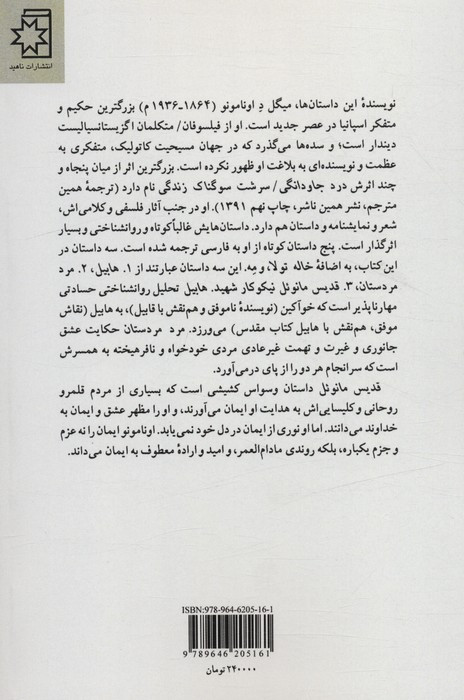 انتشارات ناهید
نویسندهٔ این داستان‌ها، میگل دِ اونامونو (۱۸۶۴ـ۱۹۳۶ م) بزرگترین حکیم و
متفکر اسپانیا در عصر جدید است. او از فیلسوفان/ متکلمان اگزیستانسیالیست
دیندار است؛ و سده‌ها می‌گذرد که در جهان مسیحیت کاتولیک، متفکری به
عظمت و نویسنده‌ای به بلاغت او ظهور نکرده است. بزرگترین اثر از میان پنجاه و
چند اثرش درد جاودانگی/ سرشت سوگناک زندگی نام دارد (ترجمهٔ همین
مترجم، نشر همین ناشر، چاپ نهم ۱۳۹۱). او در جنب آثار فلسفی و کلامی‌اش،
شعر و نمایشنامه و داستان هم دارد. داستان‌هایش غالباً کوتاه و روانشناختی و بسیار
اثرگذار است. پنج داستان کوتاه از او به فارسی ترجمه شده است. سه داستان در
این کتاب، به اضافهٔ خاله تولا، و مِه. این سه داستان عبارتند از ۱. هابیل، ۲. مرد
مردستان، ۳. قدیس مانوئل نیکوکار شهید. هابیل تحلیل روانشناختی حسادتی
مهارناپذیر است که خوآکین (نویسندهٔ ناموفق و هم‌نقش با قابیل)، به هابیل (نقاش
موفق، هم‌نقش با هابیل کتاب مقدس) می‌ورزد. مرد مردستان حکایت عشق
جانوری و غیرت و تهمت غیرعادی مردی خودخواه و نافرهیخته به همسرش
است که سرانجام هر دو را از پای درمی‌آورد.
قدیس مانوئل داستان وسواس کشیشی است که بسیاری از مردم قلمرو
روحانی و کلیسایی‌اش به هدایت او ایمان می‌آورند، و او را مظهر عشق و ایمان به
خداوند می‌دانند. اما او نوری از ایمان در دل خود نمی‌یابد. اونامونو ایمان را نه عزم
و جزم یکباره، بلکه روندی مادام‌العمر، و امید و ارادهٔ معطوف به ایمان می‌داند.
ISBN:978-964-6205-16-1
9 789646 205161
۲۴۰۰۰۰ تومان